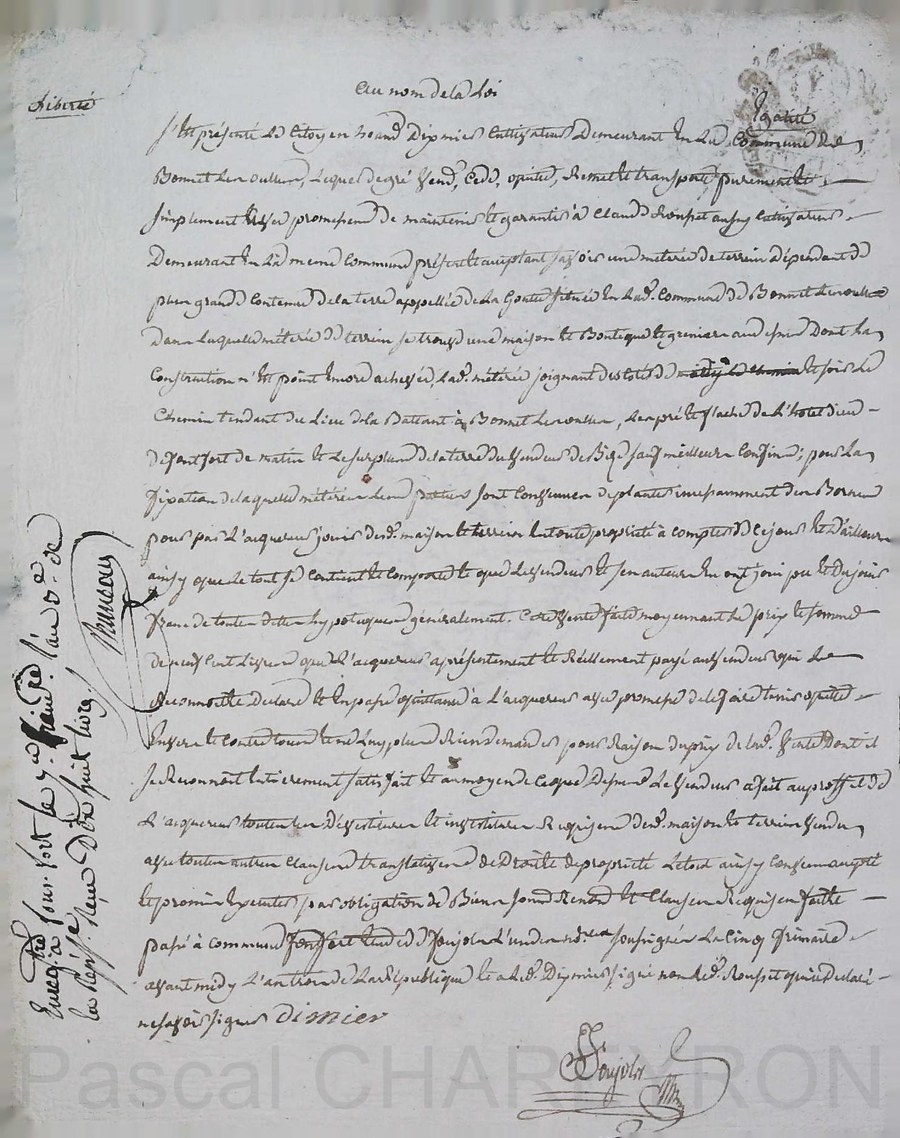 Liberté
Au nom de la Loi
Egalité
S'Est présenté Le Citoyen Dimier Cultivateur Demeurant En La Commune de
Bonnet Les oulles, Lequel de gré Vend, Cede, quitte, Remet et transporte purement et
Simplement avec promesse de maintenir et garantir à Claude Roupet aussy Cultivateur
Demeurant En La meme Commune présent et acceptant sçavoir une méterée de terrein dépendant de
plus grande Contenue de la terre appellée de La Goutte située En Lad. Commune de Bonnet Les oulles
dans Laquelle méterée de terrein se trouve une maison et Boutique et grenier au dessus Dont La
Construction n'Est point Encore achevée, Lad. méterée joignant des cotés de et soir Le
Chemin tendant du Lieu de La Battant à Bonnet Les oulles, Les pré et de L'hotel dieu
de font fort de matin et Le surplus de la terre du Vendeur de Bize sauf meilleurs Confins; pour La
fixation de laquelle méterée Les parties sont Convenues de planter incessamment des Bornes
pour par L'acquereur jouir desd. maison et terrein En toute propriété à compter de Ce jour et D'ailleurs
ainsy que Le tout se Contient et Comporte et que Le Vendeur et ses auteurs En ont joui pu et Du jouir
franc de toutes dettes hypotheques généralement. Cette Vente faite moyennant Le prix et somme
de neuf Cent Livres que L'acquereur a présentement et Réellement payé au Vendeur qui Le
Reconnoit et Declare et En passe quittance à L'acquereur avec promesse de le faire tenir quitte
Envers et Contre tous et ne Luy plus Rien demander pour Raison du prix de Lad. Vente Dont il
se Reconnoit Entierement satisfait et au moyen de Ce que Dessus Le Vendeur a fait au proffit de
L'acquereur toutes Les Devestitures et investitures Requises desd. maison et terrein Vendus
avec toutes autres Clauses translatives de Droits de propriété Le tout ainsy Convenu accepté
et promis Executer par obligation de Biens Renon et Clauses Requises faite
passé à Commune fontfort Etude de Foujols L'un des no.res soussignés Le Cinq frimaire
avant midy L'an trois de La République et a Led. Dimier signé non Led. Roupet qui a declaré
ne sçavoir signer dimier
Foujols
Enregistré à font fort le 7 frimaire l'an 3e de
la Répe. Reçu Dix huit livres